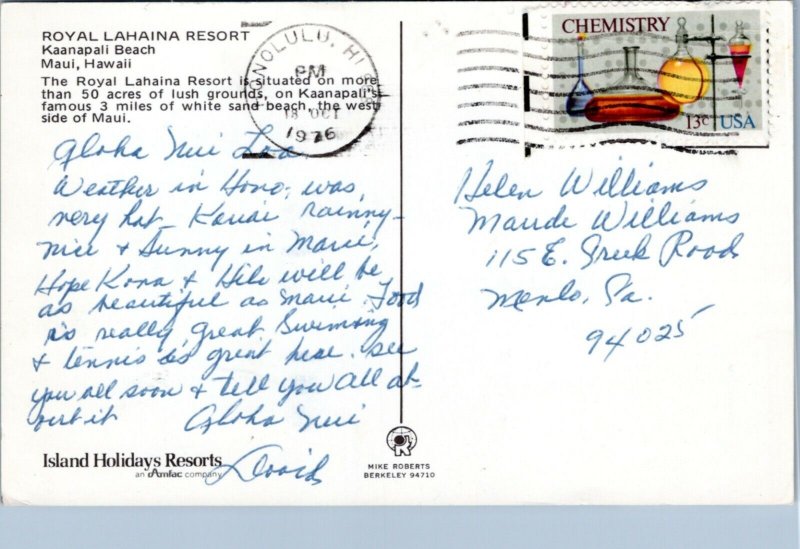 ROYAL LAHAINA RESORT
Kaanapali Beach
Maui, Hawaii
The Royal Lahaina Resort is situated on more
than 50 acres of lush grounds, on Kaanapali's
famous 3 miles of white sand beach, the west
side of Maui.
HONOLULU, HI
PM
18 OCT
1976
CHEMISTRY
13c USA
Aloha Nui Loa
Weather in Hono, was
very hot - Kauai Rainny -
nice + Sunny in Maui,
Hope Kona + Hilo will be
as beautiful as Maui. Food
is really great Swiming
+ tennis is great here. See
you all soon + tell you all ab-
out it Aloha Nui
David
Helen Williams
Maude Williams
115 E. Creek Road
Menlo, Ca.
94025
Island Holidays Resorts
an Amfac company
MIKE ROBERTS
BERKELEY 94710